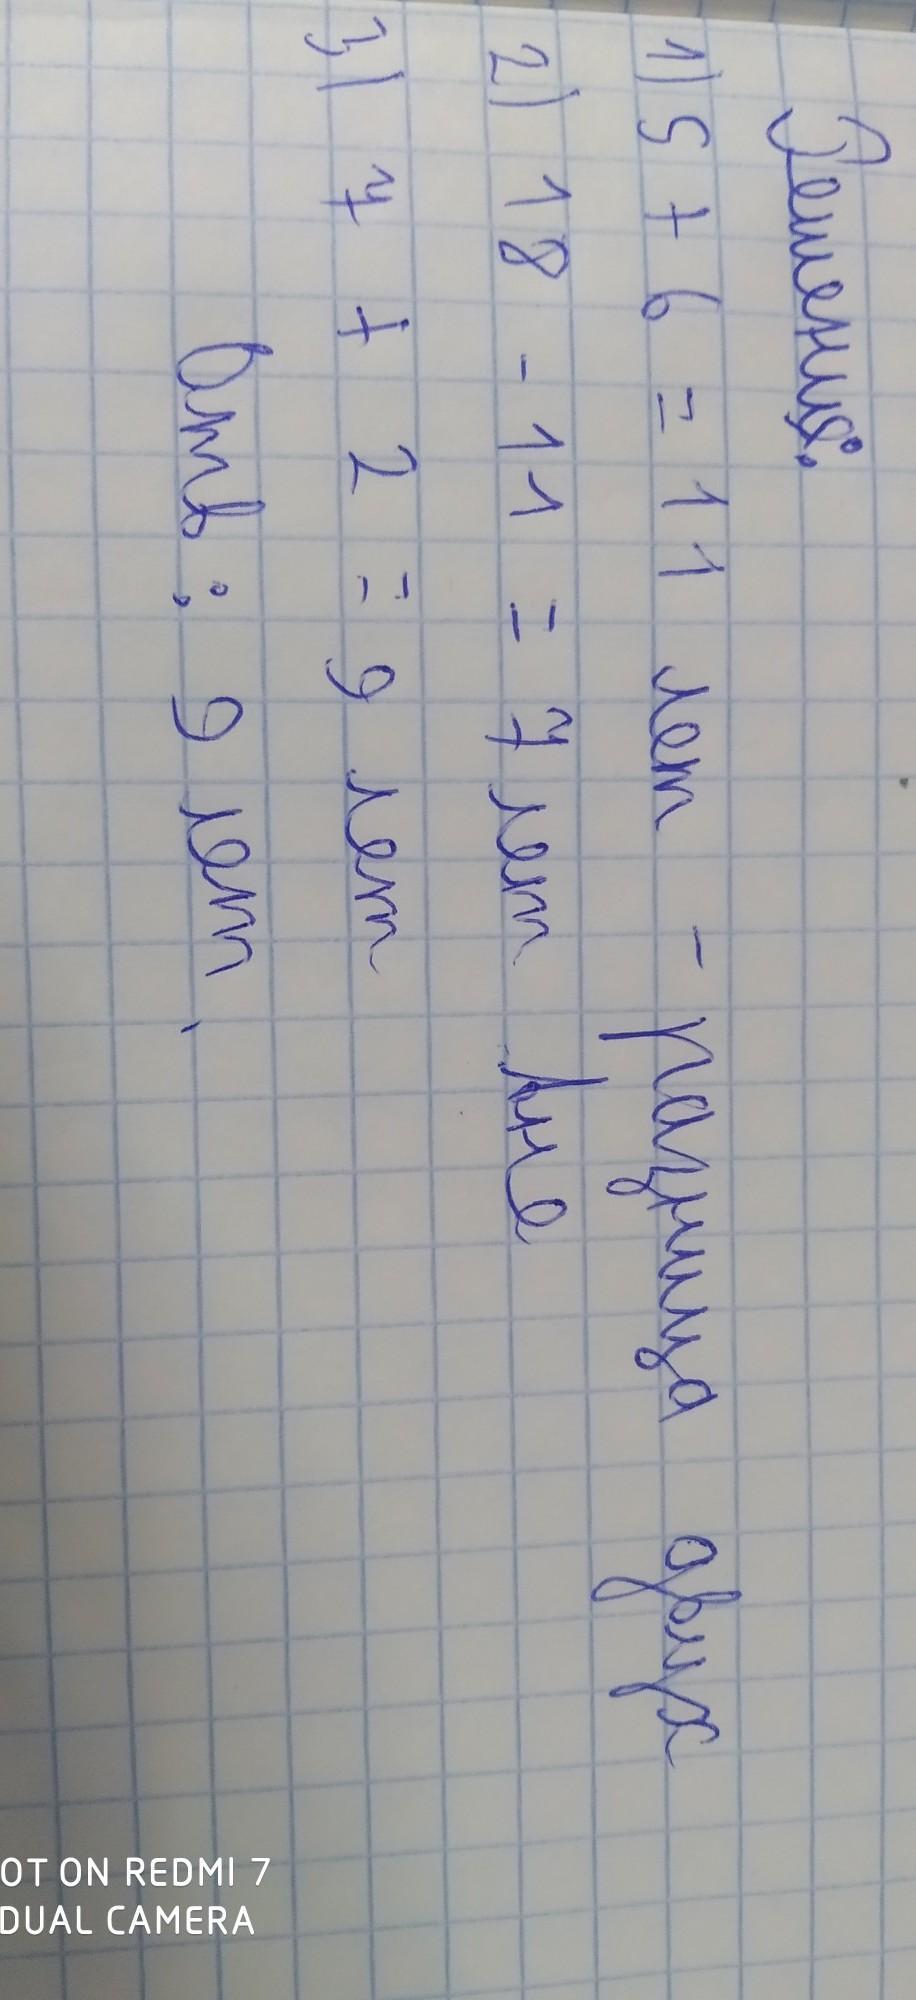 Решения:
1) 5 + 6 = 11 лет - разница двух
2) 18 - 11 = 7 лет Ане
3) 7 + 2 = 9 лет
Отв: 9 лет.
OT ON REDMI 7
DUAL CAMERA